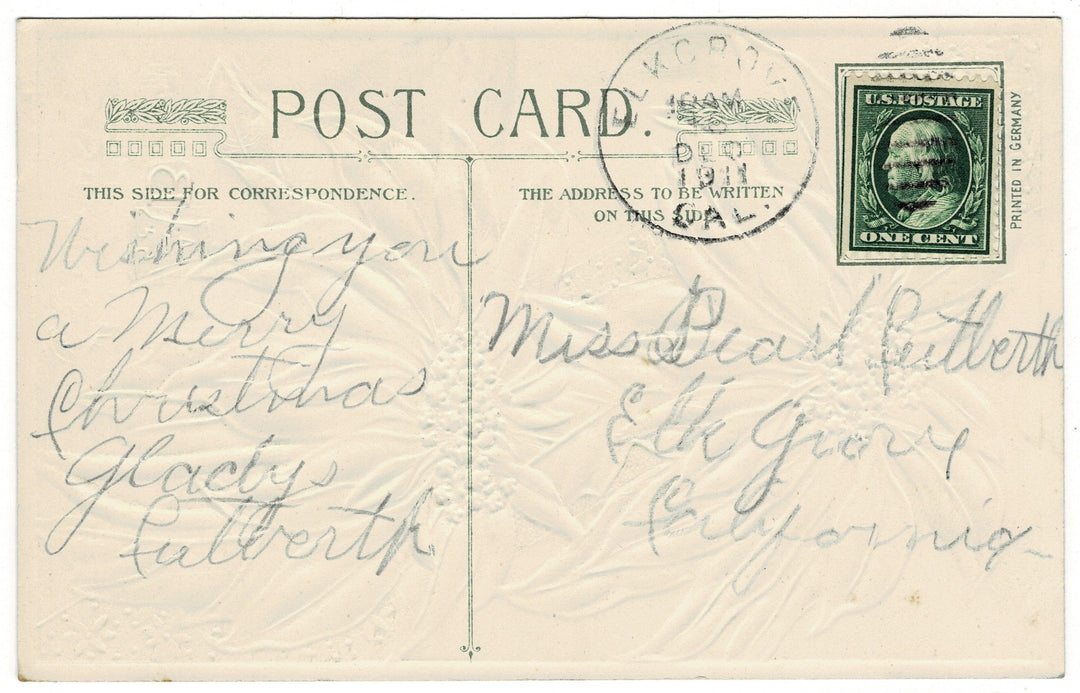 POST CARD.
THIS SIDE FOR CORRESPONDENCE.
Wishing you
a Merry
Christmas
Gladys
THE ADDRESS TO BE WRITTEN
ON THIS SIDE
Miss Pearl
Elk Grove
California
ELK GROVE
10 AM
DEC
1911
CAL.
U.S. POSTAGE
ONE CENT
PRINTED IN GERMANY